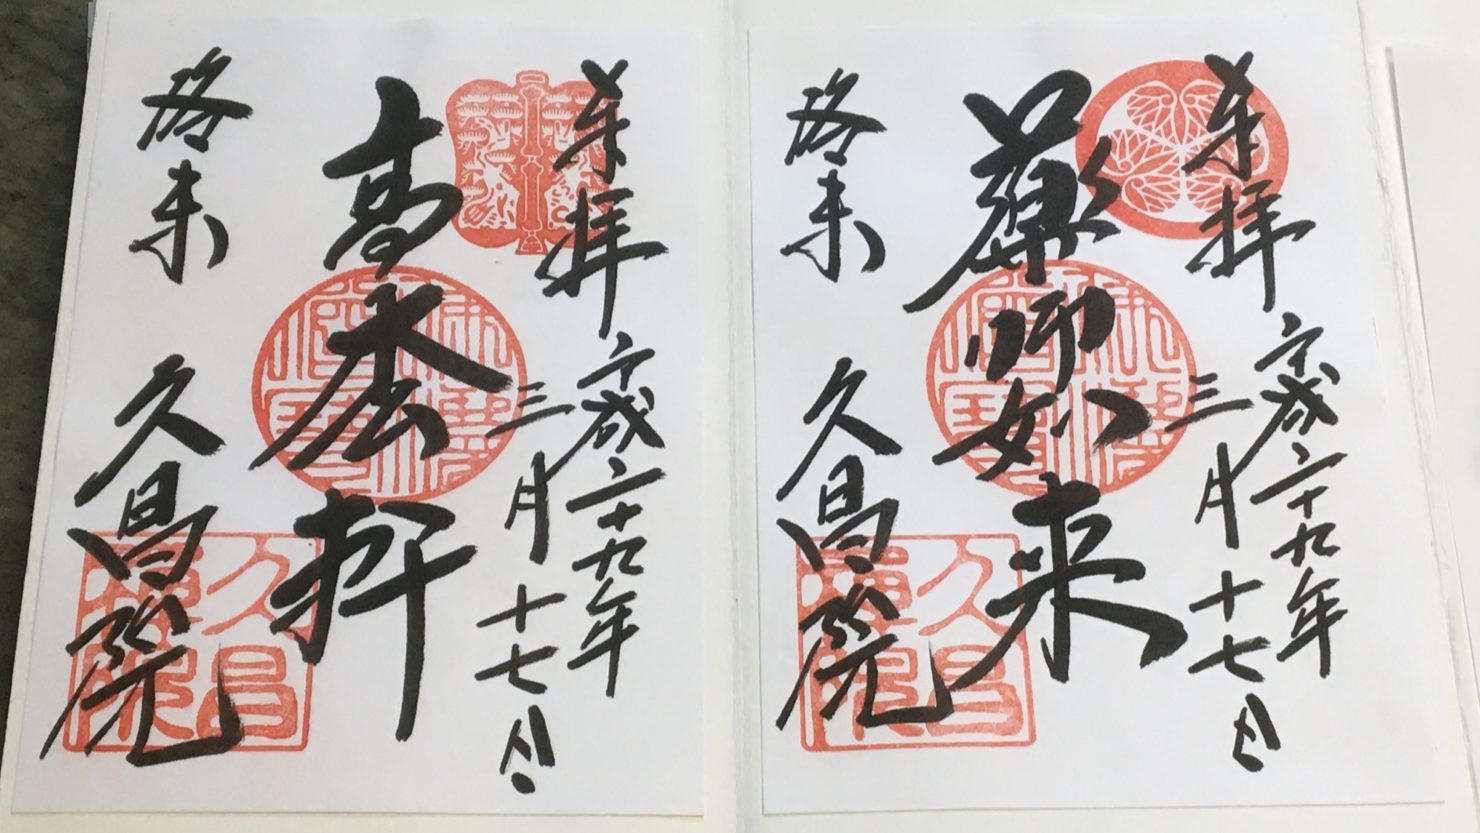 奉拝
平成二十九年
三月十七日
薬師如来
洛東 久昌院
久昌
禪院
奉拝
平成二十九年
三月十七日
高枩軒
洛東 久昌院
久昌
禪院